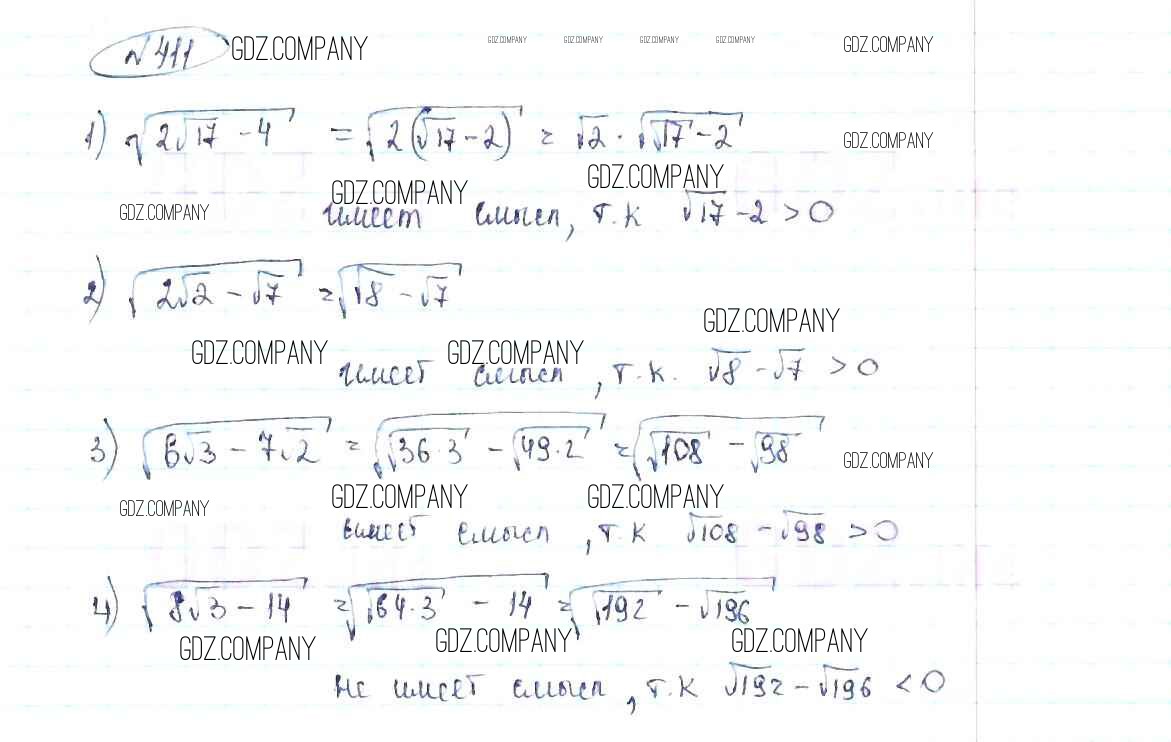 № 411 GDZ.COMPANY GDZ.COMPANY GDZ.COMPANY GDZ.COMPANY GDZ.COMPANY GDZ.COMPANY
1) √(2√17 - 4) = √(2(√17 - 2)) = √2 · √(√17 - 2) GDZ.COMPANY
GDZ.COMPANY GDZ.COMPANY GDZ.COMPANY
имеет смысл, т.к √17 - 2 > 0
2) √(2√2 - √7) = √(√8 - √7)
GDZ.COMPANY
GDZ.COMPANY GDZ.COMPANY
имеет смысл, т.к. √8 - √7 > 0
3) √(6√3 - 7√2) = √(√36·3 - √49·2) = √(√108 - √98) GDZ.COMPANY
GDZ.COMPANY GDZ.COMPANY GDZ.COMPANY
имеет смысл, т.к √108 - √98 > 0
4) √(8√3 - 14) = √(√64·3 - 14) = √(√192 - √196)
GDZ.COMPANY GDZ.COMPANY GDZ.COMPANY
не имеет смысл, т.к √192 - √196 < 0